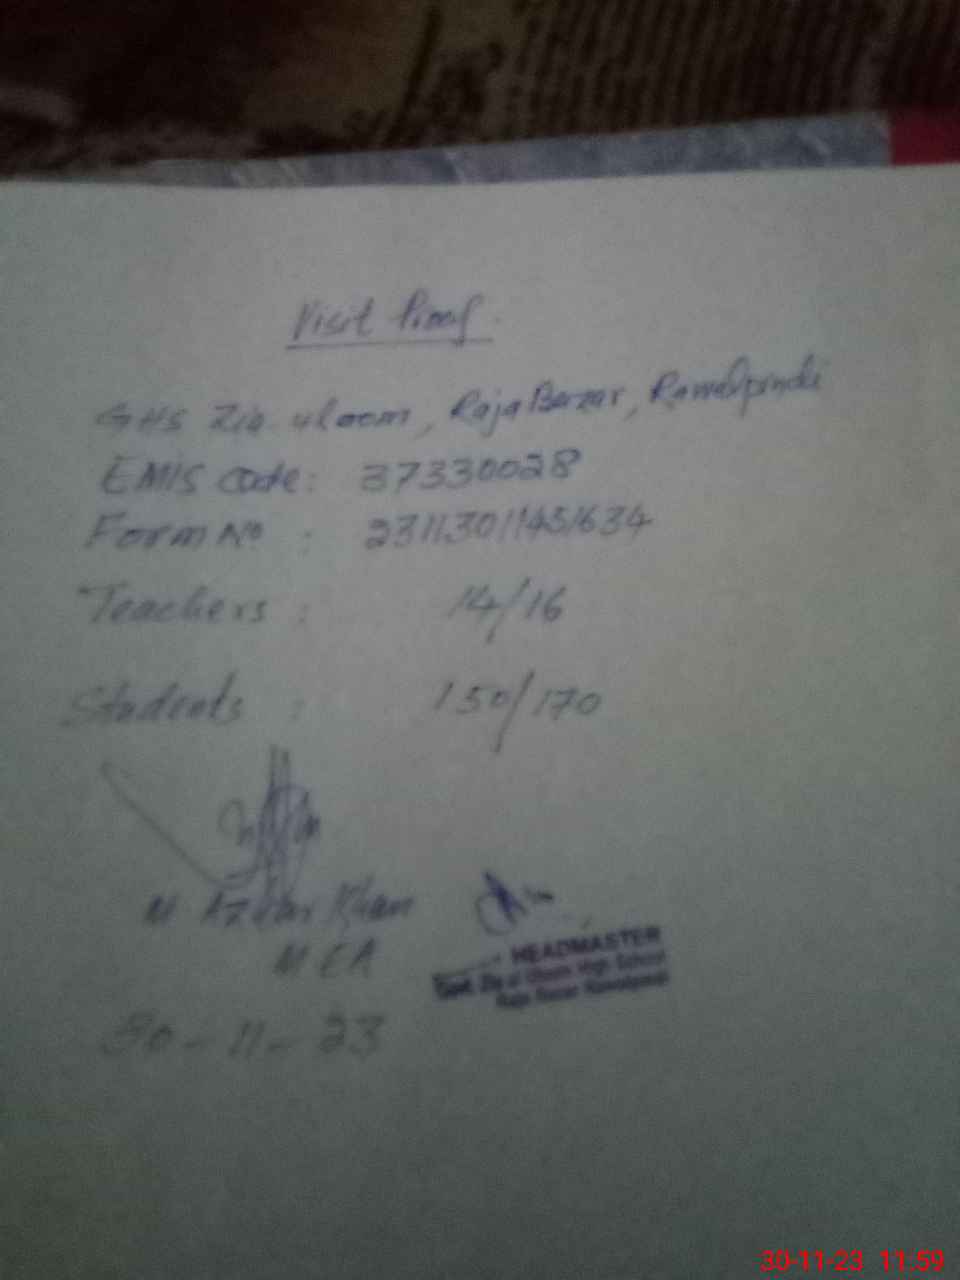 Visit Proof.
GHS Zia-uloom, Raja Bazar, Rawalpindi
EMIS Code: 37330028
Form No : 23113011451634
Teachers : 14/16
Students : 150/170
M Azhar Khan
MEA
HEADMASTER
Govt. Zia ul Uloom High School
Raja Bazar Rawalpindi
30-11-23
30-11-23 11:59